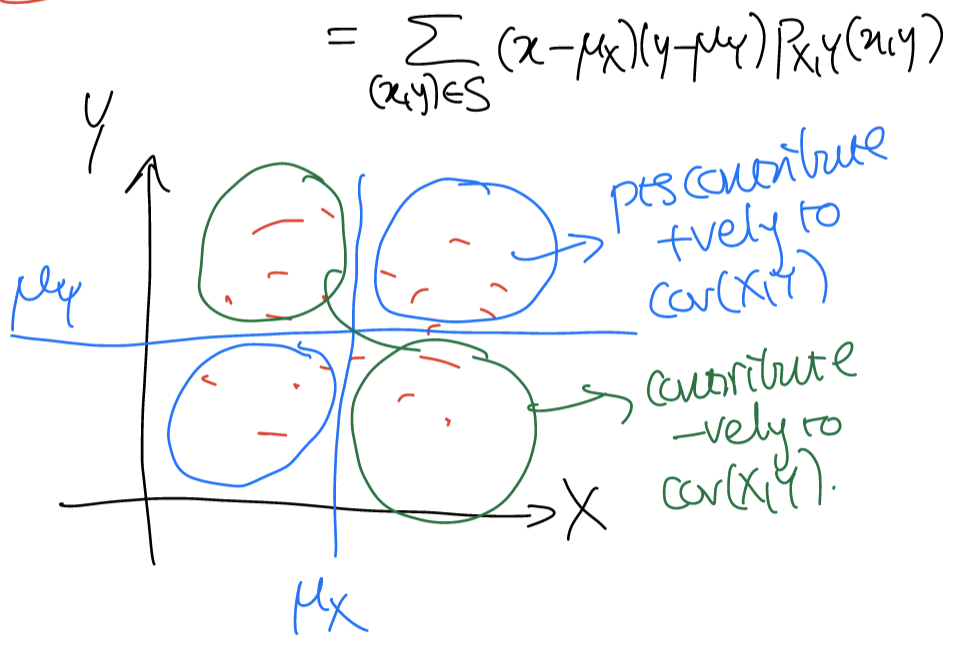 = ∑ (x-μX)(y-μY) PX,Y(x,y)
(x,y)∈S
Y
pts contribute
+vely to
cov(X,Y)
μY
contribute
-vely to
cov(X,Y).
X
μX